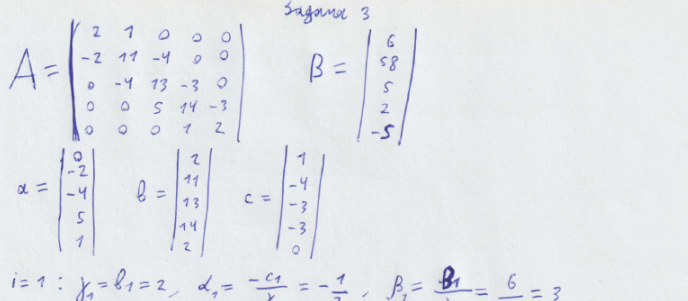 Задача 3
A = | 2 1 0 0 0 |
| -2 11 -4 0 0 |
| 0 -4 13 -3 0 |
| 0 0 5 14 -3 |
| 0 0 0 1 2 |
B = | 6 |
| 58 |
| 5 |
| 2 |
| -5 |
a = | 0 |
| -2 |
| -4 |
| 5 |
| 1 |
b = | 2 |
| 11 |
| 13 |
| 14 |
| 2 |
c = | 1 |
| -4 |
| -3 |
| -3 |
| 0 |
i=1 : γ₁ = b₁ = 2, α₁ = -c₁/γ = -1/2, β₁ = B₁/ = 6/ = 3